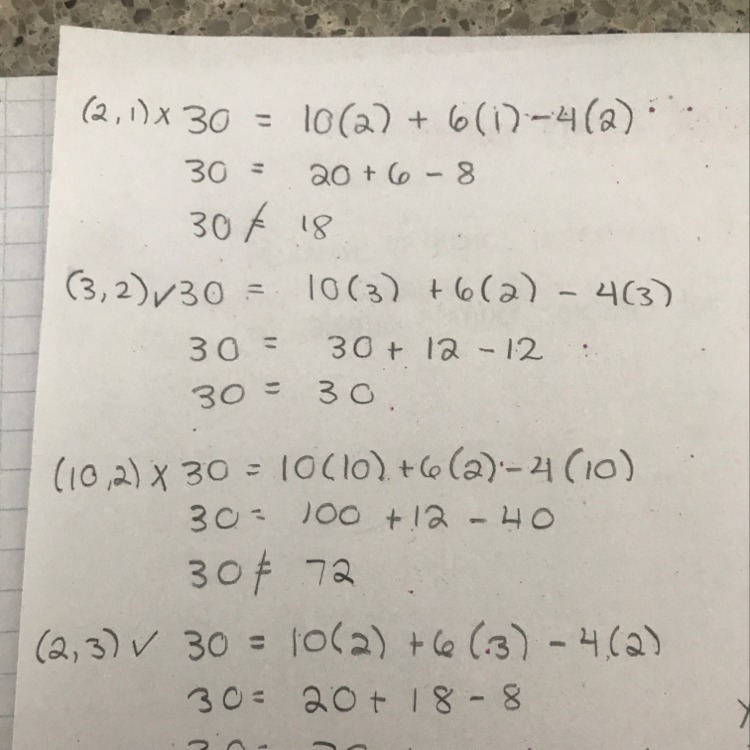 (2,1)× 30 = 10(2) + 6(1) - 4(2)
30 = 20 + 6 - 8
30 ≠ 18
(3,2)✓ 30 = 10(3) + 6(2) - 4(3)
30 = 30 + 12 - 12
30 = 30
(10,2)× 30 = 10(10) + 6(2) - 4(10)
30 = 100 + 12 - 40
30 ≠ 72
(2,3)✓ 30 = 10(2) + 6(3) - 4(2)
30 = 20 + 18 - 8